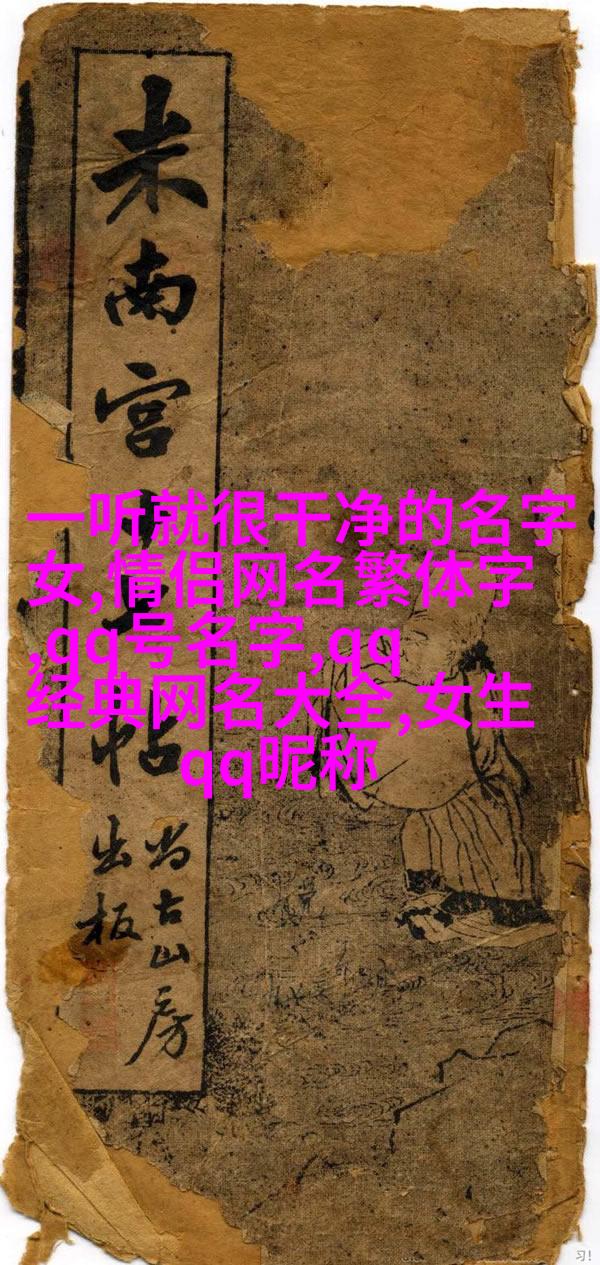 米南宫帖
尚古山房
出板
一听就很干净的名字
女,情侣网名繁体字
,qq号名字,qq
经典网名大全,女生
qq昵称
习!